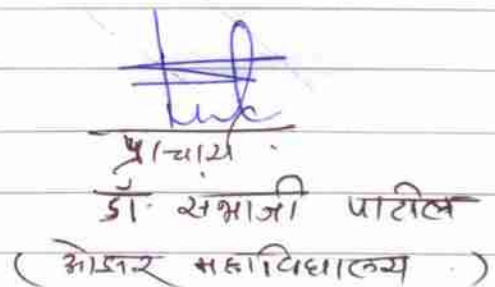 प्राचार्य
डॉ. संभाजी पाटील
( महाविद्यालय . )